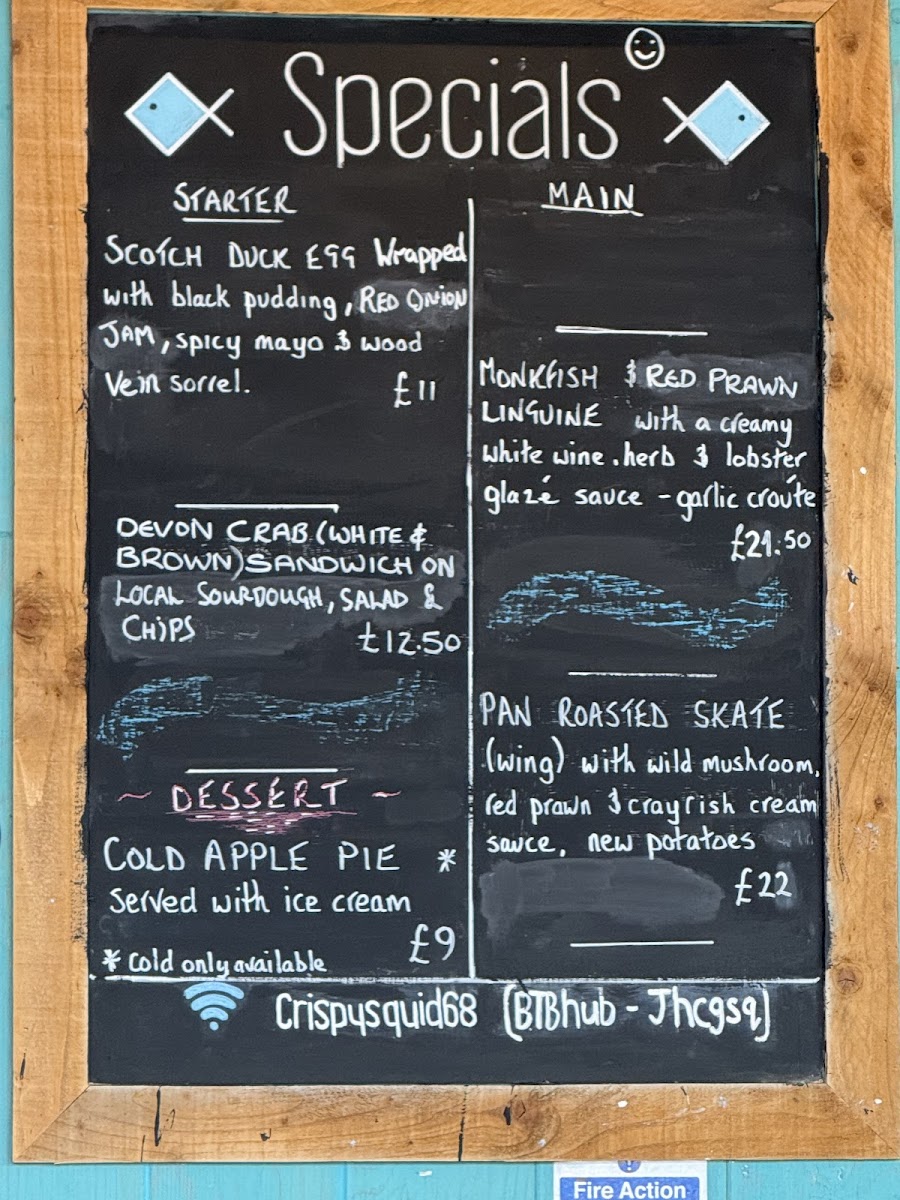 Specials
STARTER
SCOTCH DUCK EGG Wrapped
with black pudding, RED ONION
JAM, spicy mayo & wood
Vein sorrel.
£11
DEVON CRAB (WHITE &
BROWN) SANDWICH ON
LOCAL SOURDOUGH, SALAD &
CHIPS
£12.50
~ DESSERT ~
COLD APPLE PIE *
served with ice cream
£9
* cold only available
MAIN
MONKFISH & RED PRAWN
LINGUINE with a creamy
white wine. herb & lobster
glazé sauce - garlic croúte
£21.50
PAN ROASTED SKATE
(wing) with wild mushroom,
red prawn & crayfish cream
sauce, new potatoes
£22
Crispysquid68 (BTBhub - Jhcgsq)
Fire Action